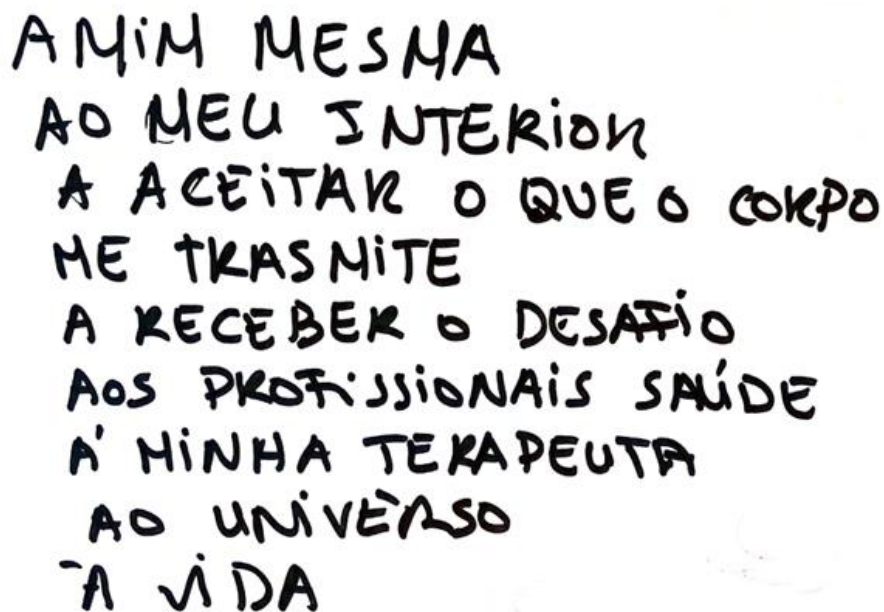 A MIM MESMA
AO MEU INTERIOR
A ACEITAR O QUE O CORPO
ME TRASMITE
A RECEBER O DESAFIO
AOS PROFISSIONAIS SAÚDE
Á MINHA TERAPEUTA
AO UNIVERSO
À VIDA